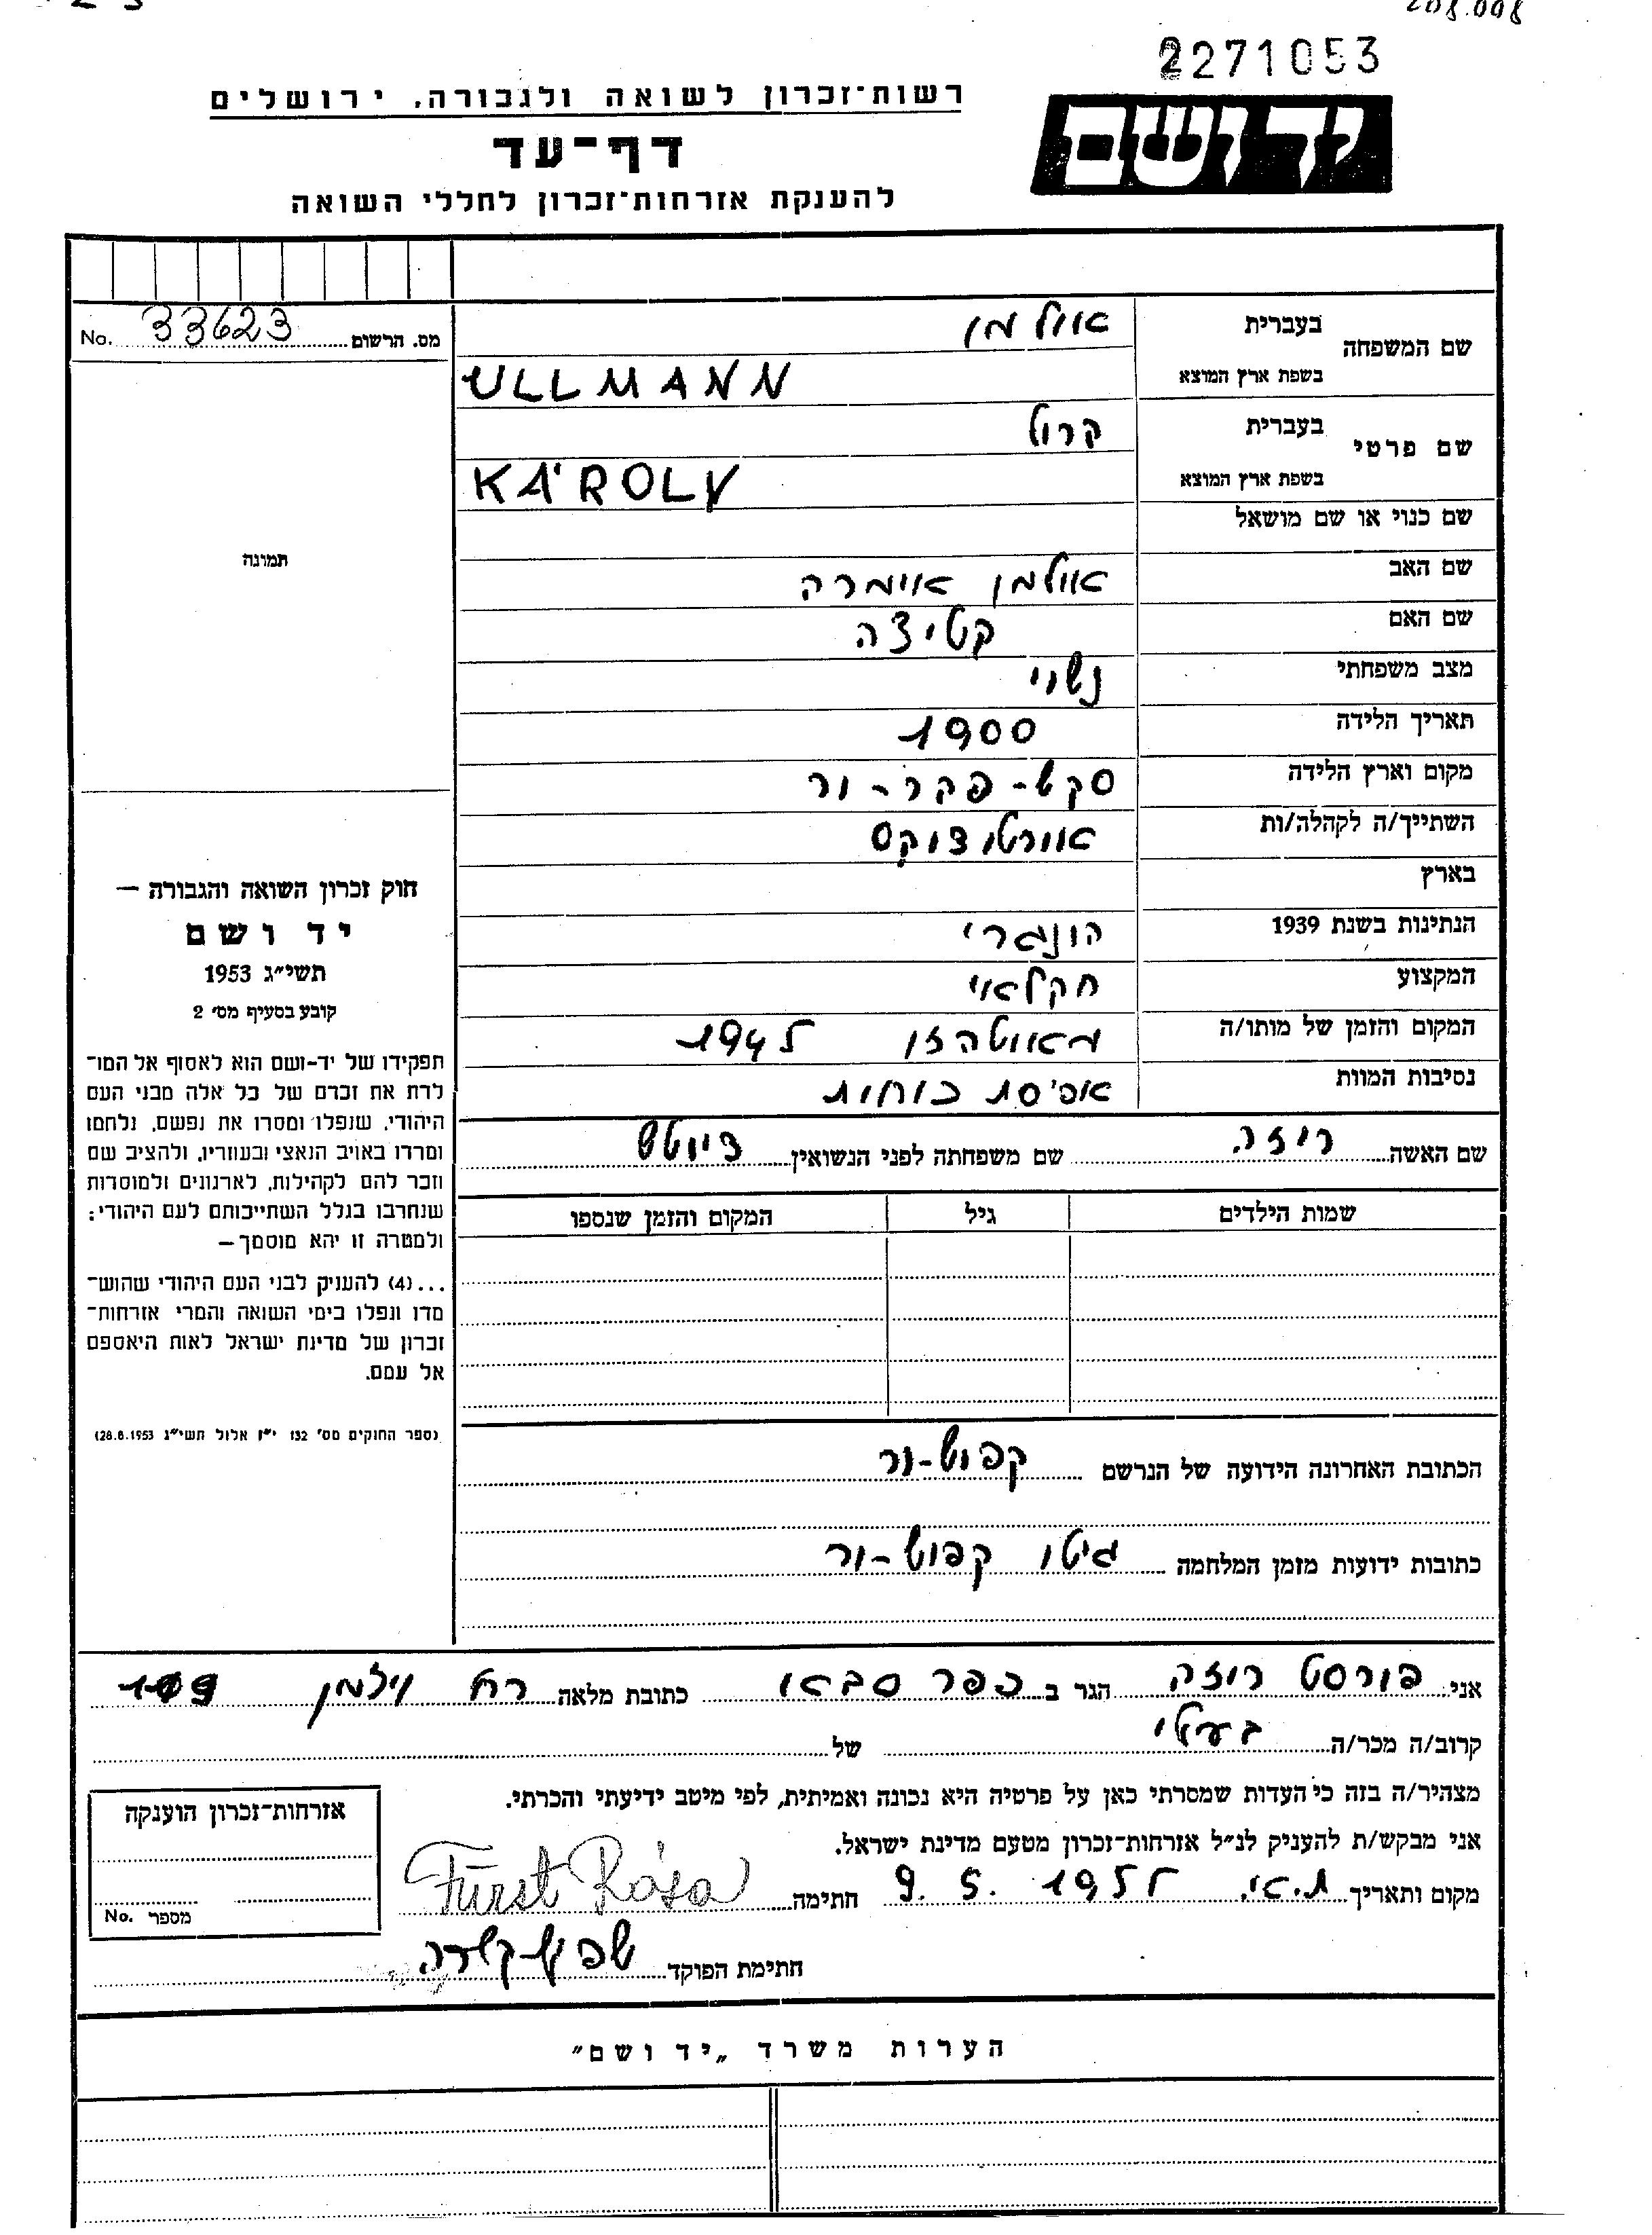 2271053
רשות־זכרון לשואה ולגבורה, ירושלים
יד ושם
דף־עד
להענקת אזרחות־זכרון לחללי השואה
מס. הרשום 33623 No.
שם המשפחה בעברית אולמן
בשפת ארץ המוצא ULLMANN
שם פרטי בעברית קרול
בשפת ארץ המוצא KÁROLY
שם כנוי או שם מושאל
תמונה
שם האב אולמן אימרה
שם האם קטיצה
מצב משפחתי נשוי
תאריך הלידה 1900
מקום וארץ הלידה סקש-פהר-ור
השתייך/ה לקהלה/ות אורטודוקס
בארץ
הנתינות בשנת 1939 הונגרי
המקצוע חקלאי
המקום והזמן של מותו/ה מאוטהזן 1945
נסיבות המוות אפיסת כוחות
שם האשה רוזה שם משפחתה לפני הנשואין דויטש
שמות הילדים גיל המקום והזמן שנספו
חוק זכרון השואה והגבורה —
יד ושם
תשי״ג 1953
קובע בסעיף מס׳ 2
תפקידו של יד-ושם הוא לאסוף אל המו־
לדת את זכרם של כל אלה מבני העם
היהודי, שנפלו ומסרו את נפשם, נלחמו
ומרדו באויב הנאצי ובעוזריו, ולהציב שם
וזכר להם לקהילות, לארגונים ולמוסדות
שנחרבו בגלל השתייכותם לעם היהודי;
ולמטרה זו יהא מוסמך —
...(4) להעניק לבני העם היהודי שהוש־
מדו ונפלו בימי השואה והמרי אזרחות־
זכרון של מדינת ישראל לאות היאספם
אל עמם.
(ספר החוקים מס׳ 132 י״ז אלול תשי״ג 28.8.1953)
הכתובת האחרונה הידועה של הנרשם קפוש-ור
כתובות ידועות מזמן המלחמה גיטו קפוש-ור
אני פורסט רוזה הגר ב כפר סבא כתובת מלאה רח וילמן
קרוב/ה מכר/ה בעלי של
מצהיר/ה בזה כי העדות שמסרתי כאן על פרטיה היא נכונה ואמיתית, לפי מיטב ידיעתי והכרתי.
אני מבקש/ת להעניק לנ״ל אזרחות־זכרון מטעם מדינת ישראל.
מקום ותאריך ת.א. 9. 5. 1955 חתימה Fürst Rósa
חתימת הפוקד
אזרחות־זכרון הוענקה
מספר No.
הערות משרד „יד ושם״